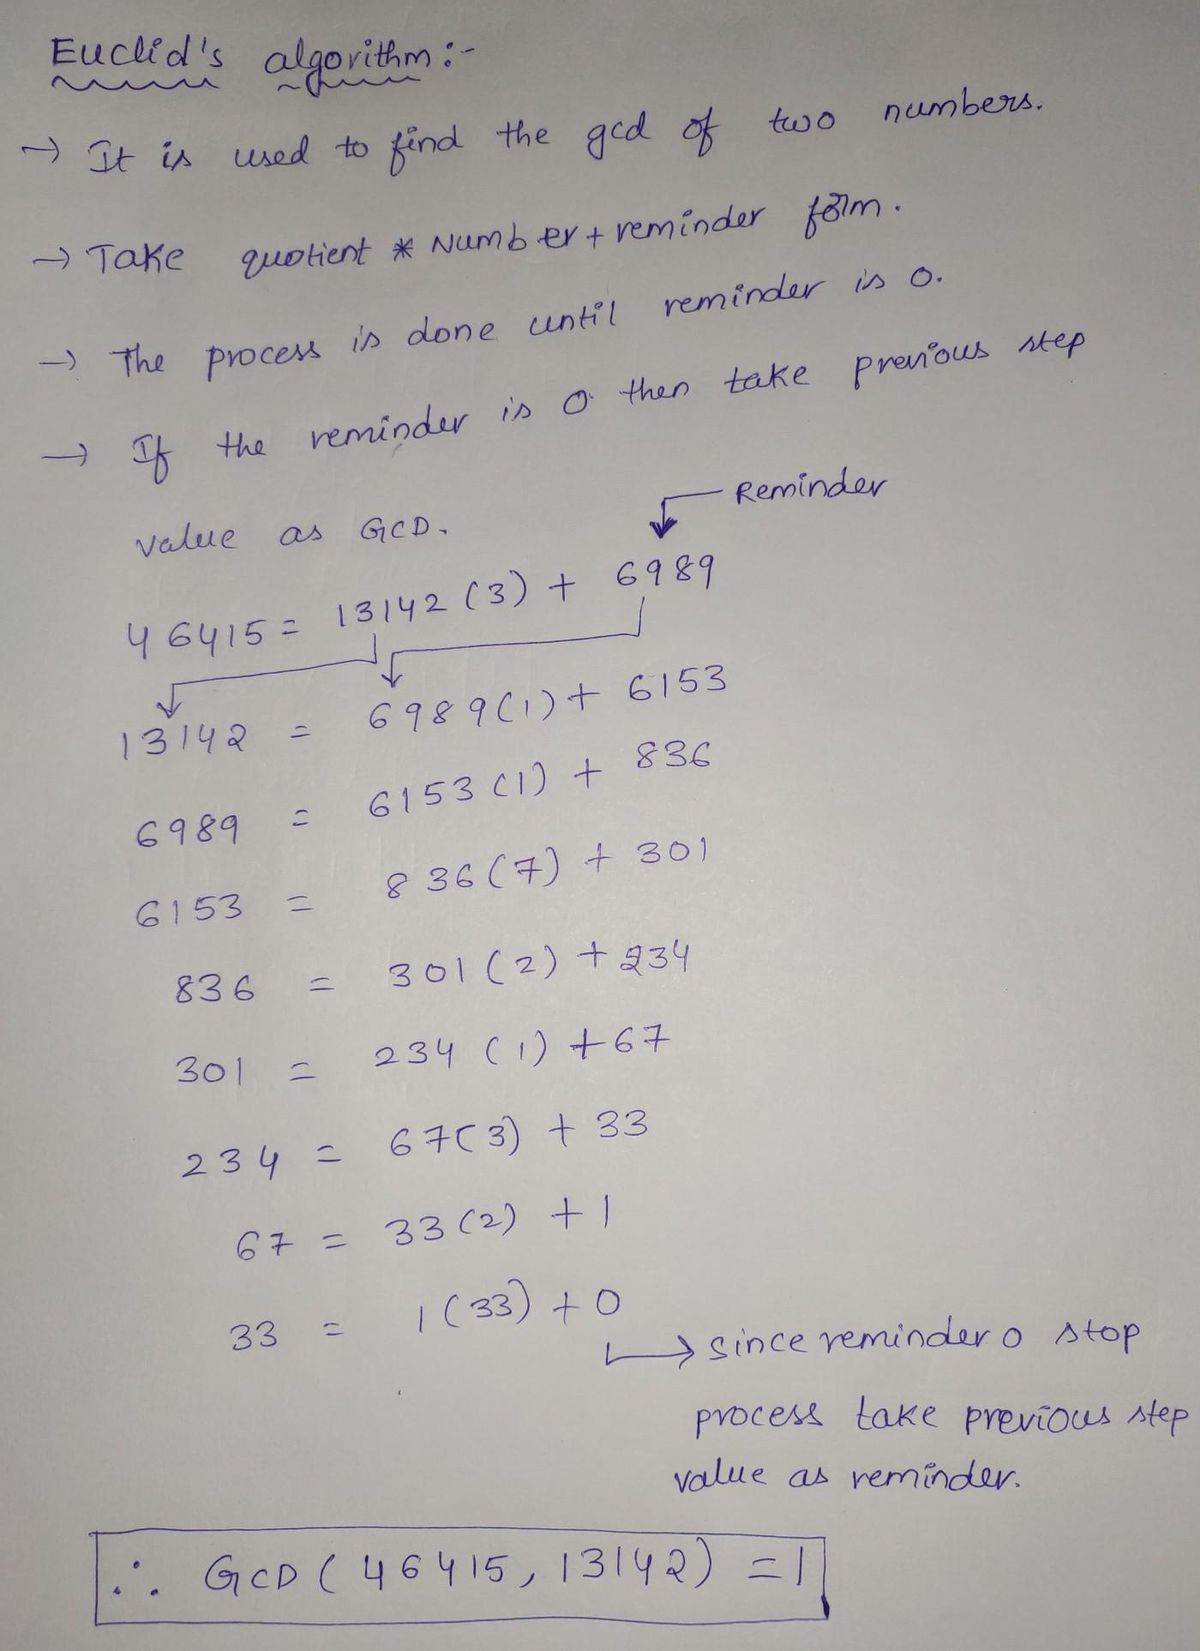 Euclid's algorithm:-
→ It is used to find the gcd of two numbers.
→ Take quotient * Number + reminder form.
→ The process is done until reminder is 0.
→ If the reminder is 0 then take previous step
value as GCD.
Reminder
46415 = 13142 (3) + 6989
13142 = 6989(1) + 6153
6989 = 6153 (1) + 836
6153 = 836 (7) + 301
836 = 301 (2) + 234
301 = 234 (1) + 67
234 = 67(3) + 33
67 = 33 (2) + 1
33 = 1 (33) + 0
→ since reminder 0 stop
process take previous step
value as reminder.
∴ GCD ( 46415, 13142) = 1